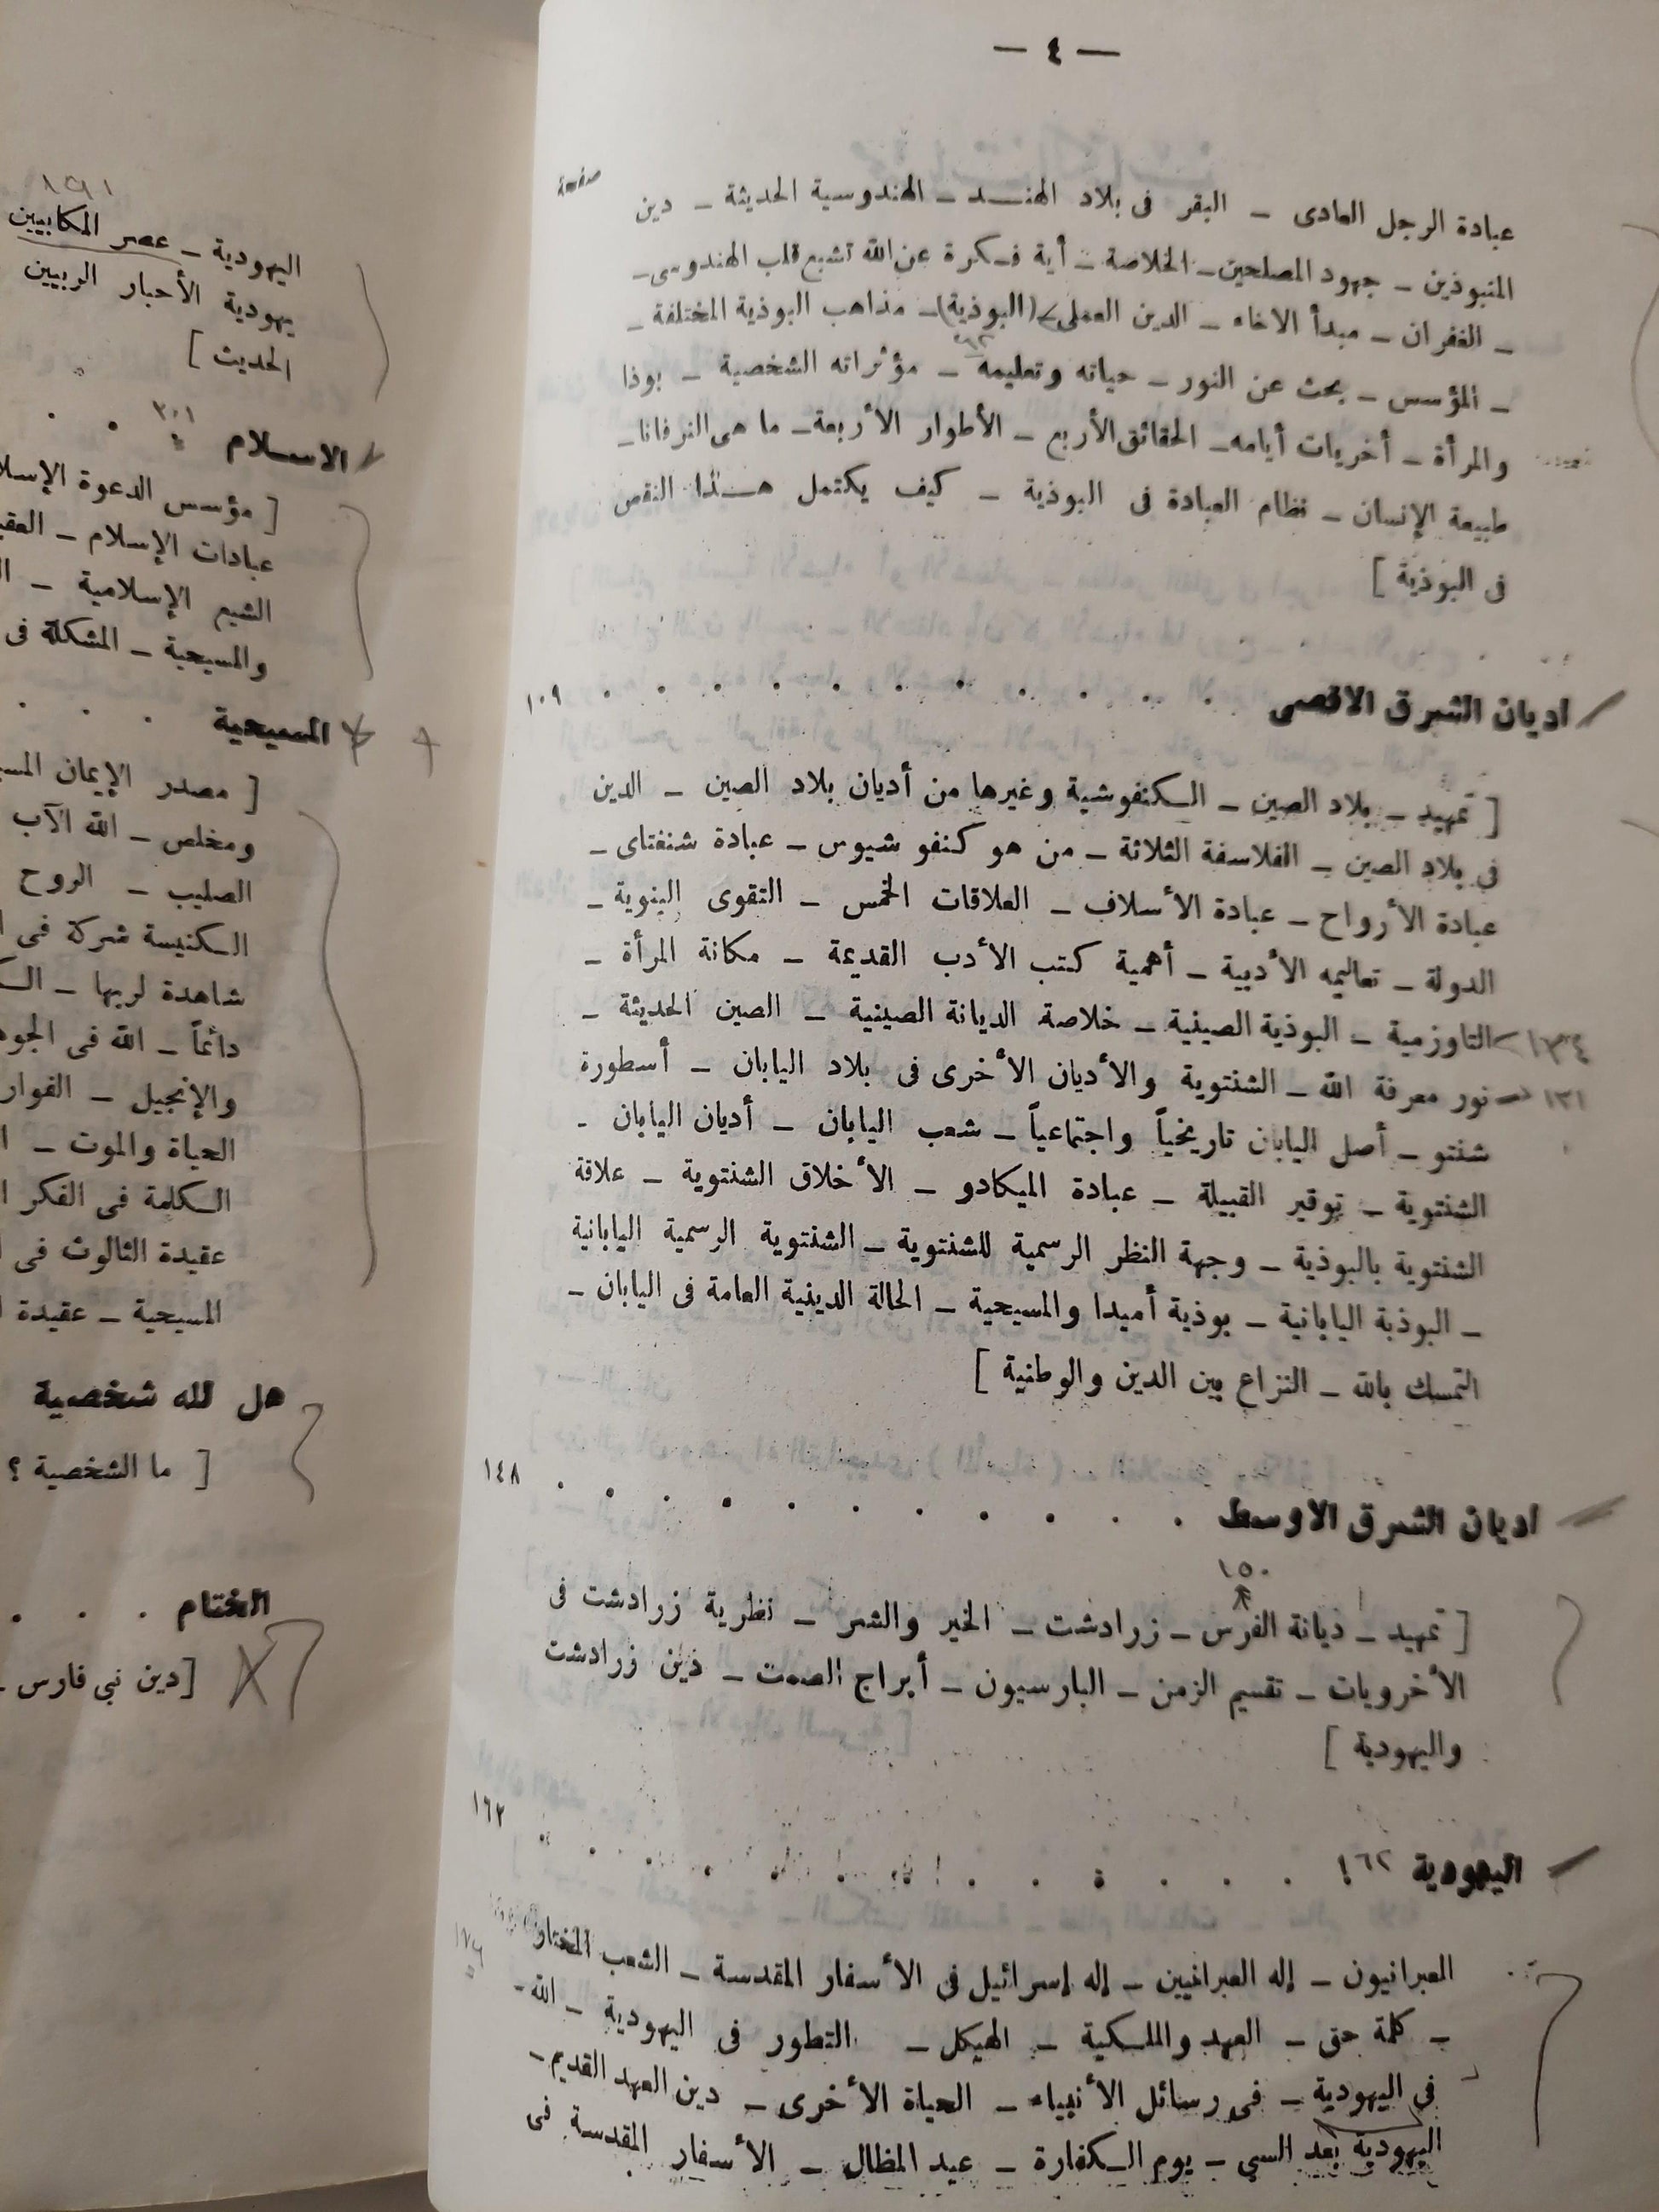 — ٤ —
صفحة
عبادة الرجل العادى – البقر فى بلاد الهنـــد – الهندوسية الحديثة – دين
المنبوذين – جهود المصلحين – الخلاصة – أية فكرة عن الله تشبع قلب الهندوسى –
– الغفران – مبدأ الاخاء – الدين العملى (البوذية) – مذاهب البوذية المختلفة –
– المؤسس – بحث عن النور – حياته وتعليمه – مؤثراته الشخصية – بوذا
والمرأة – أخريات أيامه – الحقائق الأربع – الأطوار الأربعة – ما هى النرفانا –
طبيعة الإنسان – نظام العبادة فى البوذية – كيف يكتمل هـــذا النقص
فى البوذية ]
اديان الشرق الاقصى . . . . . . . . . . . ١٠٩
[ تمهيد – بلاد الصين – الكنفوشية وغيرها من أديان بلاد الصين – الدين
فى بلاد الصين – الفلاسفة الثلاثة – من هو كنفو شيوس – عبادة شنغتاى –
عبادة الأرواح – عبادة الأسلاف – العلاقات الخمس – التقوى البنوية –
الدولة – تعاليمه الأدبية – أهمية كتب الأدب القديمة – مكانة المرأة –
التاوزمية – البوذية الصينية – خلاصة الديانة الصينية – الصين الحديثة –
١٣١ نور معرفة الله – الشنتوية والأديان الأخرى فى بلاد اليابان – أسطورة
شنتو – أصل اليابان تاريخياً واجتماعياً – شعب اليابان – أديان اليابان –
الشنتوية – توقير القبيلة – عبادة الميكادو – الأخلاق الشنتوية – علاقة
الشنتوية بالبوذية – وجهة النظر الرسمية للشنتوية – الشنتوية الرسمية اليابانية
– البوذية اليابانية – بوذية أميدا والمسيحية – الحالة الدينية العامة فى اليابان –
التمسك بالله – النزاع بين الدين والوطنية ]
اديان الشرق الاوسط . . . . . . . . . . . ١٤٨
١٥٠
[ تمهيد – ديانة الفرس – زرادشت – الخير والشر – نظرية زرادشت فى
الأخرويات – تقسيم الزمن – البارسيون – أبراج الصمت – دين زرادشت
واليهودية ]
اليهودية ١٦٢ . . . . . . . . . . . ١٦٢
العبرانيون – إله العبرانيين – إله إسرائيل فى الأسفار المقدسة – الشعب المختار
– كلمة حق – العهد والملكية – الهيكل – التطور فى اليهودية – الله –
فى اليهودية – فى رسائل الأنبياء – الحياة الأخرى – دين العهد القديم –
اليهودية بعد السبي – يوم الكفارة – عيد المظال – الأسفار المقدسة فى
١٩١
اليهودية – عصر المكابيين
يهودية الأحبار الربيين
الحديث ]
الاسلام ٢٠١ . .
[ مؤسس الدعوة
عبادات الإسلام –
الشيع الإسلامية –
والمسيحية – المشكلة فى
المسيحية . . .
[ مصدر الإيمان
ومخلص – الله الآب
الصليب – الروح
الكنيسة شركة فى
شاهدة لربها –
دائماً – الله فى
والإنجيل –
الحياة والموت –
الكلمة فى الفكر
عقيدة الثالوث فى
المسيحية – عقيدة
هل لله شخصية
[ ما الشخصية ؟
الختام . . .
[دين نبى فارس –